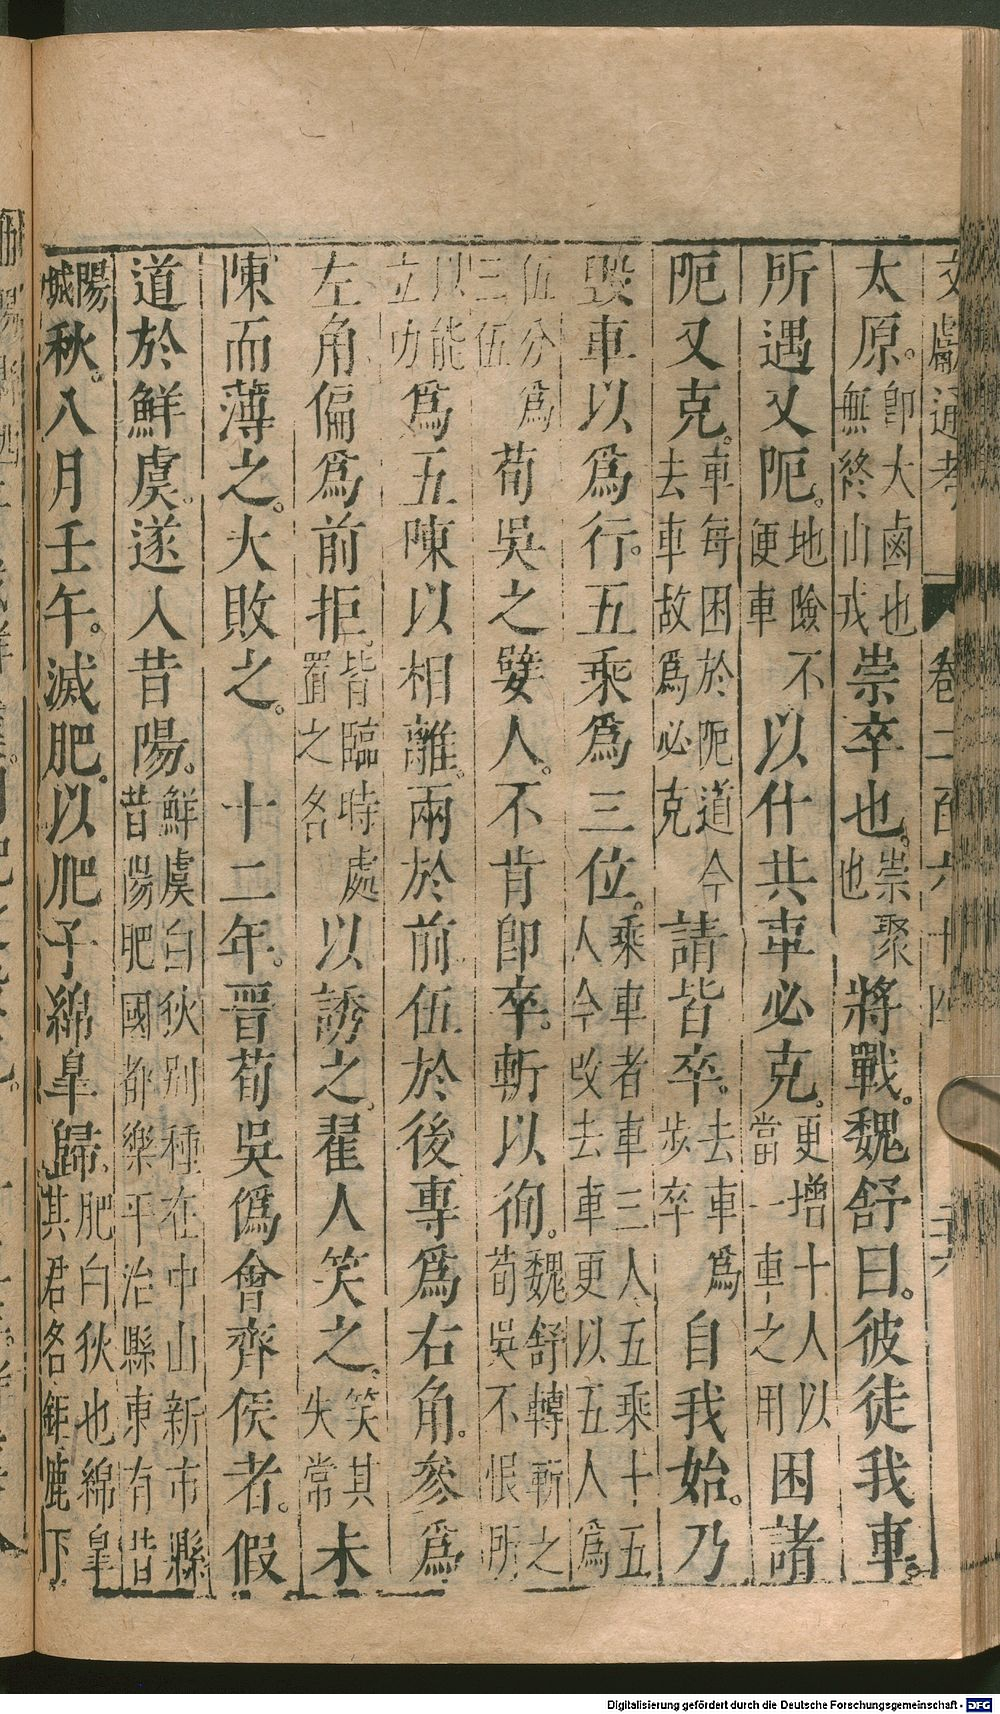 太原。即大鹵也無終山戎崇卒也。崇聚也將戰。魏舒曰。彼徒我車。
所遇又阨。地險不便車以什共車必克。更增十人以當一車之用困諸
阨又克。車每困於阨道今去車故爲必克請皆卒。去車爲步卒自我始。乃
毀車以爲行。五乘爲三位。乘車者車三人五乘十五人今改去車更以五人爲
伍分爲三伍荀吳之嬖人。不肯即卒。斬以徇。魏舒轉斬之荀吳不恨所
以能立功爲五陳以相離。兩於前伍於後專爲右角。參爲
左角偏爲前拒。皆臨時處置之名以誘之。翟人笑之。笑其失常未
陳而薄之。大敗之。十二年。晉荀吳僞會齊侯者。假
道於鮮虞。遂入昔陽。鮮虞白狄別種在中山新市縣昔陽肥國都樂平治縣東有昔
陽城秋。八月壬午。滅肥。以肥子綿皐歸。肥白狄也綿皐其君名鉅鹿下
文獻通考 卷二百六十四
Digitalisierung gefördert durch die Deutsche Forschungsgemeinschaft - DFG